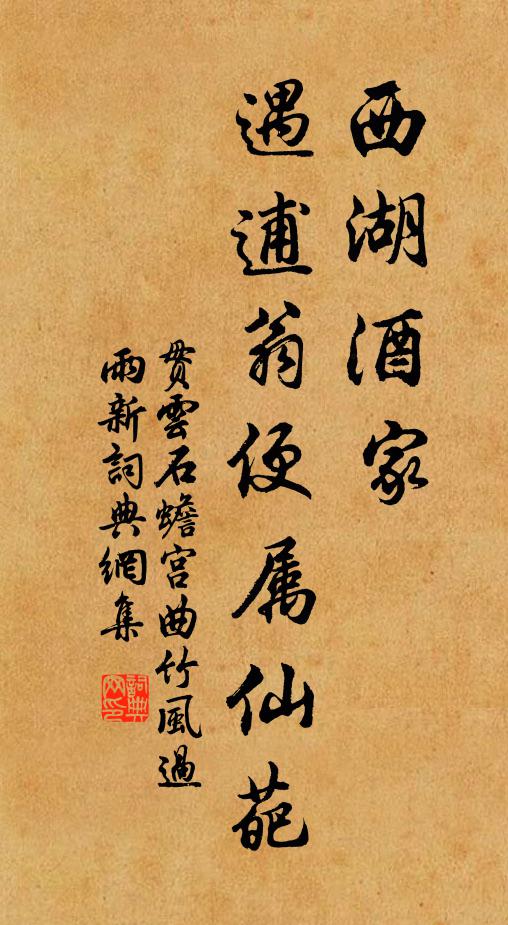 西湖酒家
遇逋翁便属仙葩
贯雲石蟾宫曲竹風過
雨新詞典網集
詞典網印